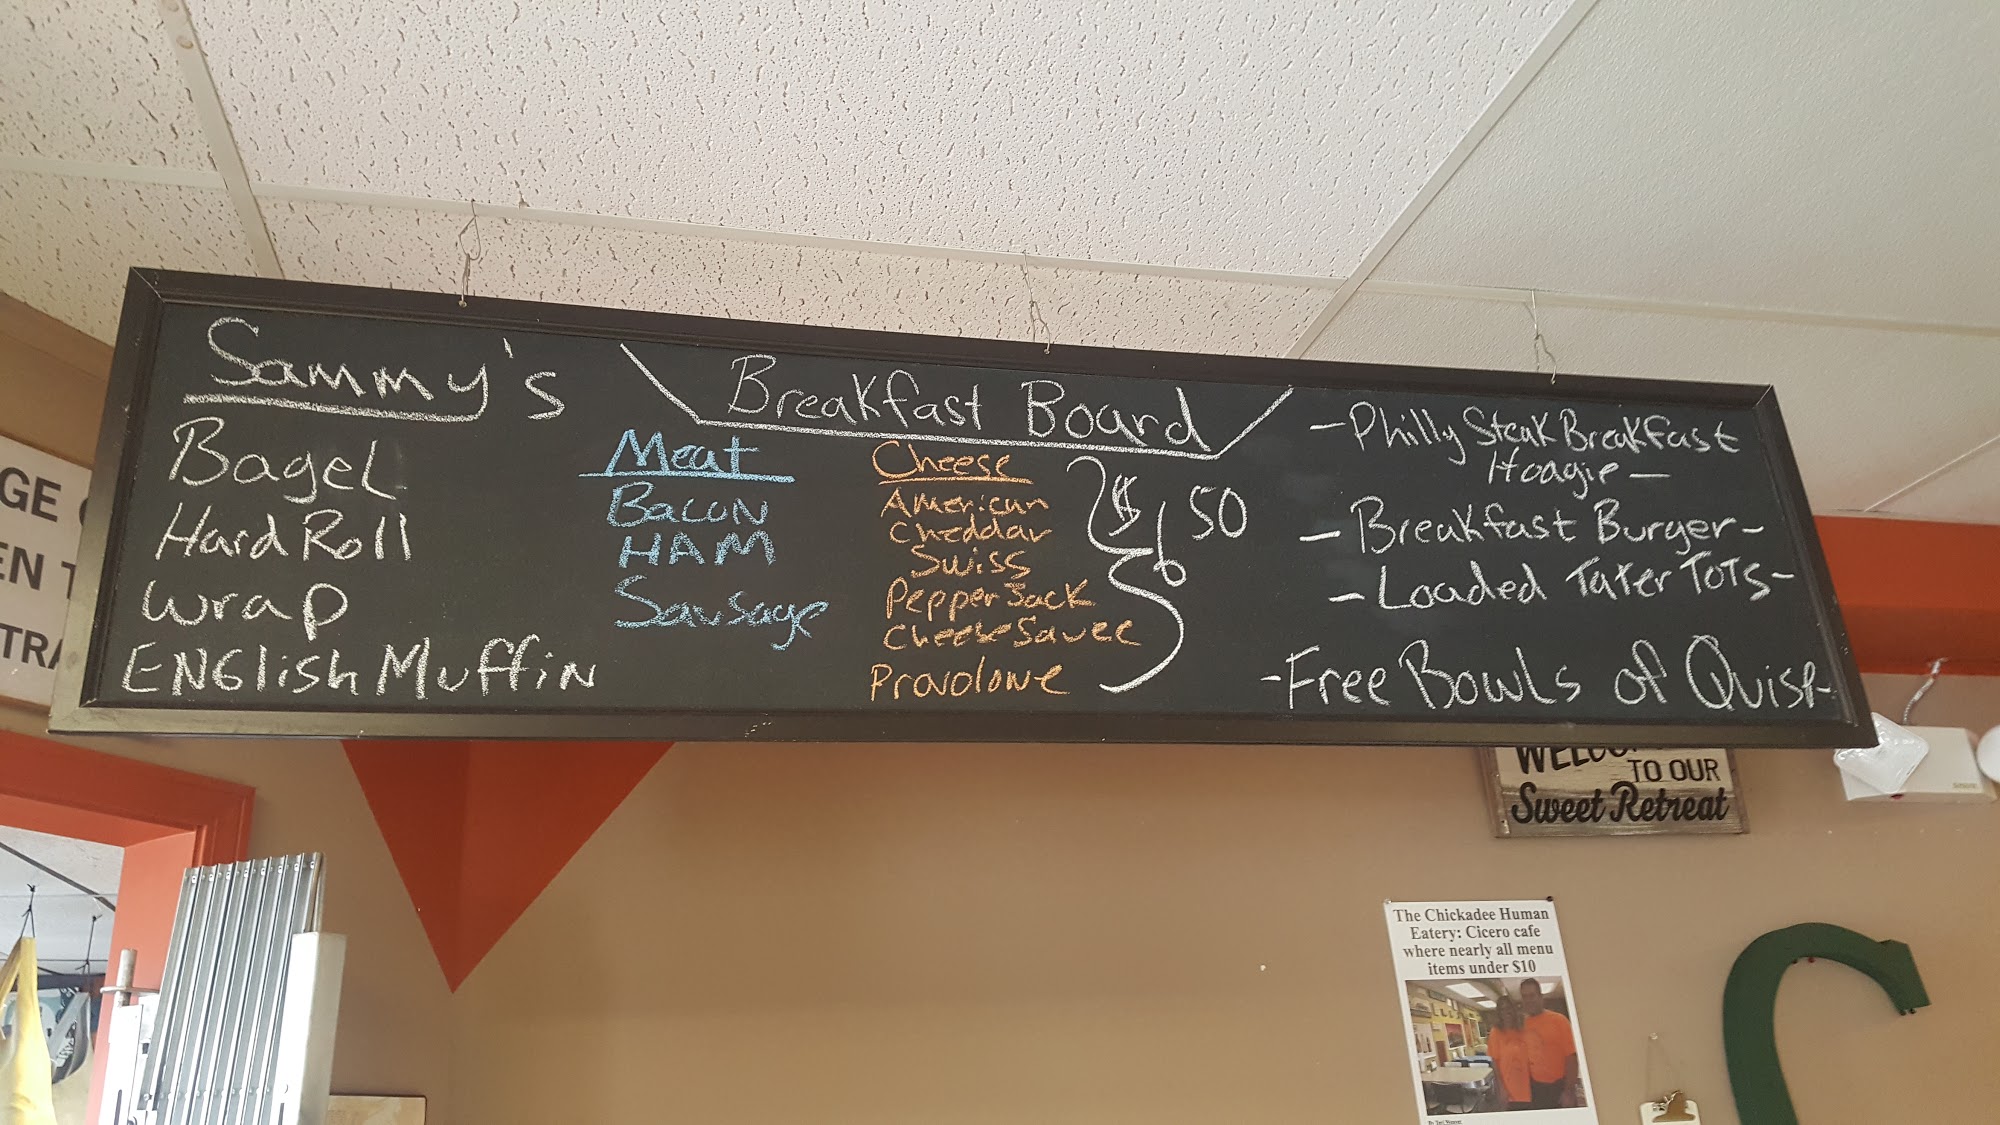 Sammy's
Bagel
Hard Roll
Wrap
ENGlish Muffin
Breakfast Board
Meat
BACON
HAM
Sausage
Cheese
American
Cheddar
Swiss
Pepper Jack
Cheese Sauce
Provolone
50
-Philly Steak Breakfast
Hoagie-
-Breakfast Burger-
-Loaded Tater Tots-
-Free Bowls of Quisp-
GE
EN T
TRA
TO OUR
Sweet Retreat
The Chickadee Human
Eatery: Cicero cafe
where nearly all menu
items under $10